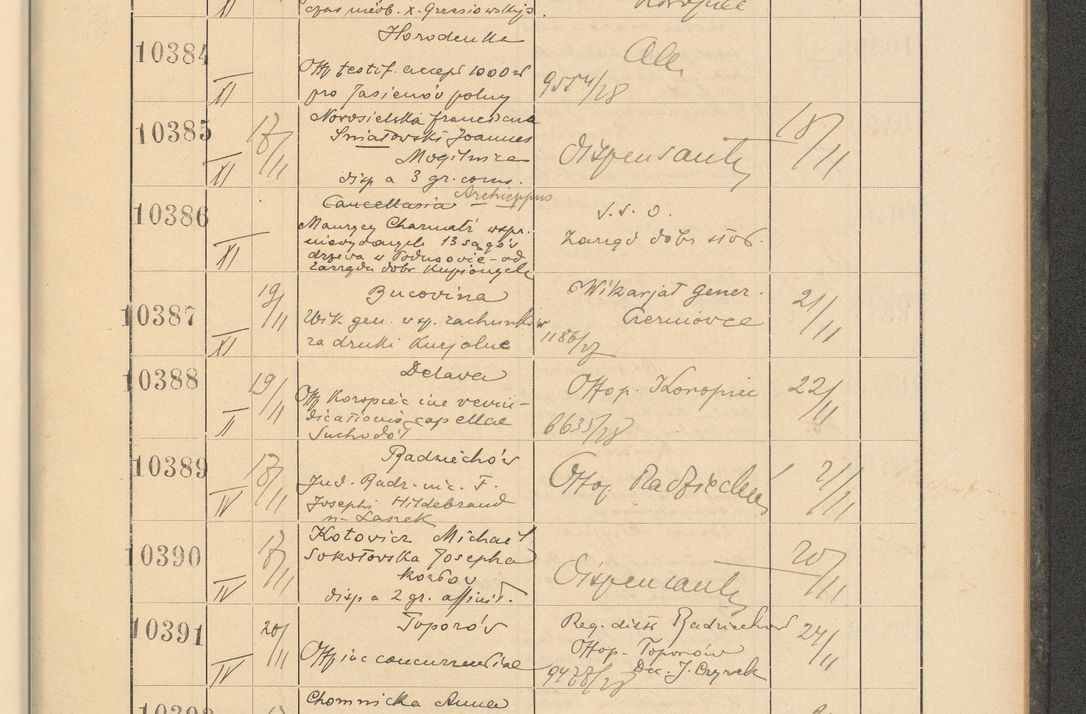 XI
czas nieob. x. Gressiowskiego
10384
Horodenka
XI
Offp testif. accept 1000 zł
pro Jasienów polny
All.
9554/28
10385
XI
17/11
Nowosielska Franciszka
Śniatowski Joannes
Mogilnica
disp a 3 gr. cons.
dispensantur
18/11
10386
XI
Cancellaria Archieppus
Maurycy Charmatz wspr.
niewydanych 13 sągów
drzewa w Podusowie - od
zarządu dobr kupionych
s. s. o.
Zarząd dóbr stoł.
10387
XI
19/11
Bucovina
Wik gen. wsp. rachunków
za druki Kurjalne
Wikarjat Gener.
Czerniowce
1186/27
21/11
10388
II
19/11
Delawa
Offp Koropiec inc revin-
dicationis capellae
Suchodół
Offop. Koropiec
6635/28
22/11
10389
IV
17/11
Radziechów
Jud. Radz. nic. F.
Josephi Hildebrand
n- Lasek
Offop Radziechów
21/11
10390
IV
17/11
Kotowicz Michael
Sokołowska Josepha
Kozłów
disp a 2 gr. affinit.
dispensantur
20/11
10391
IV
20/11
Toporów
Offp inc concurrentiae
Reg. distr Radziechów
Offop. Toporów
Dec. J. Czyrek
9428/28
24/11
Chomnicka Anna